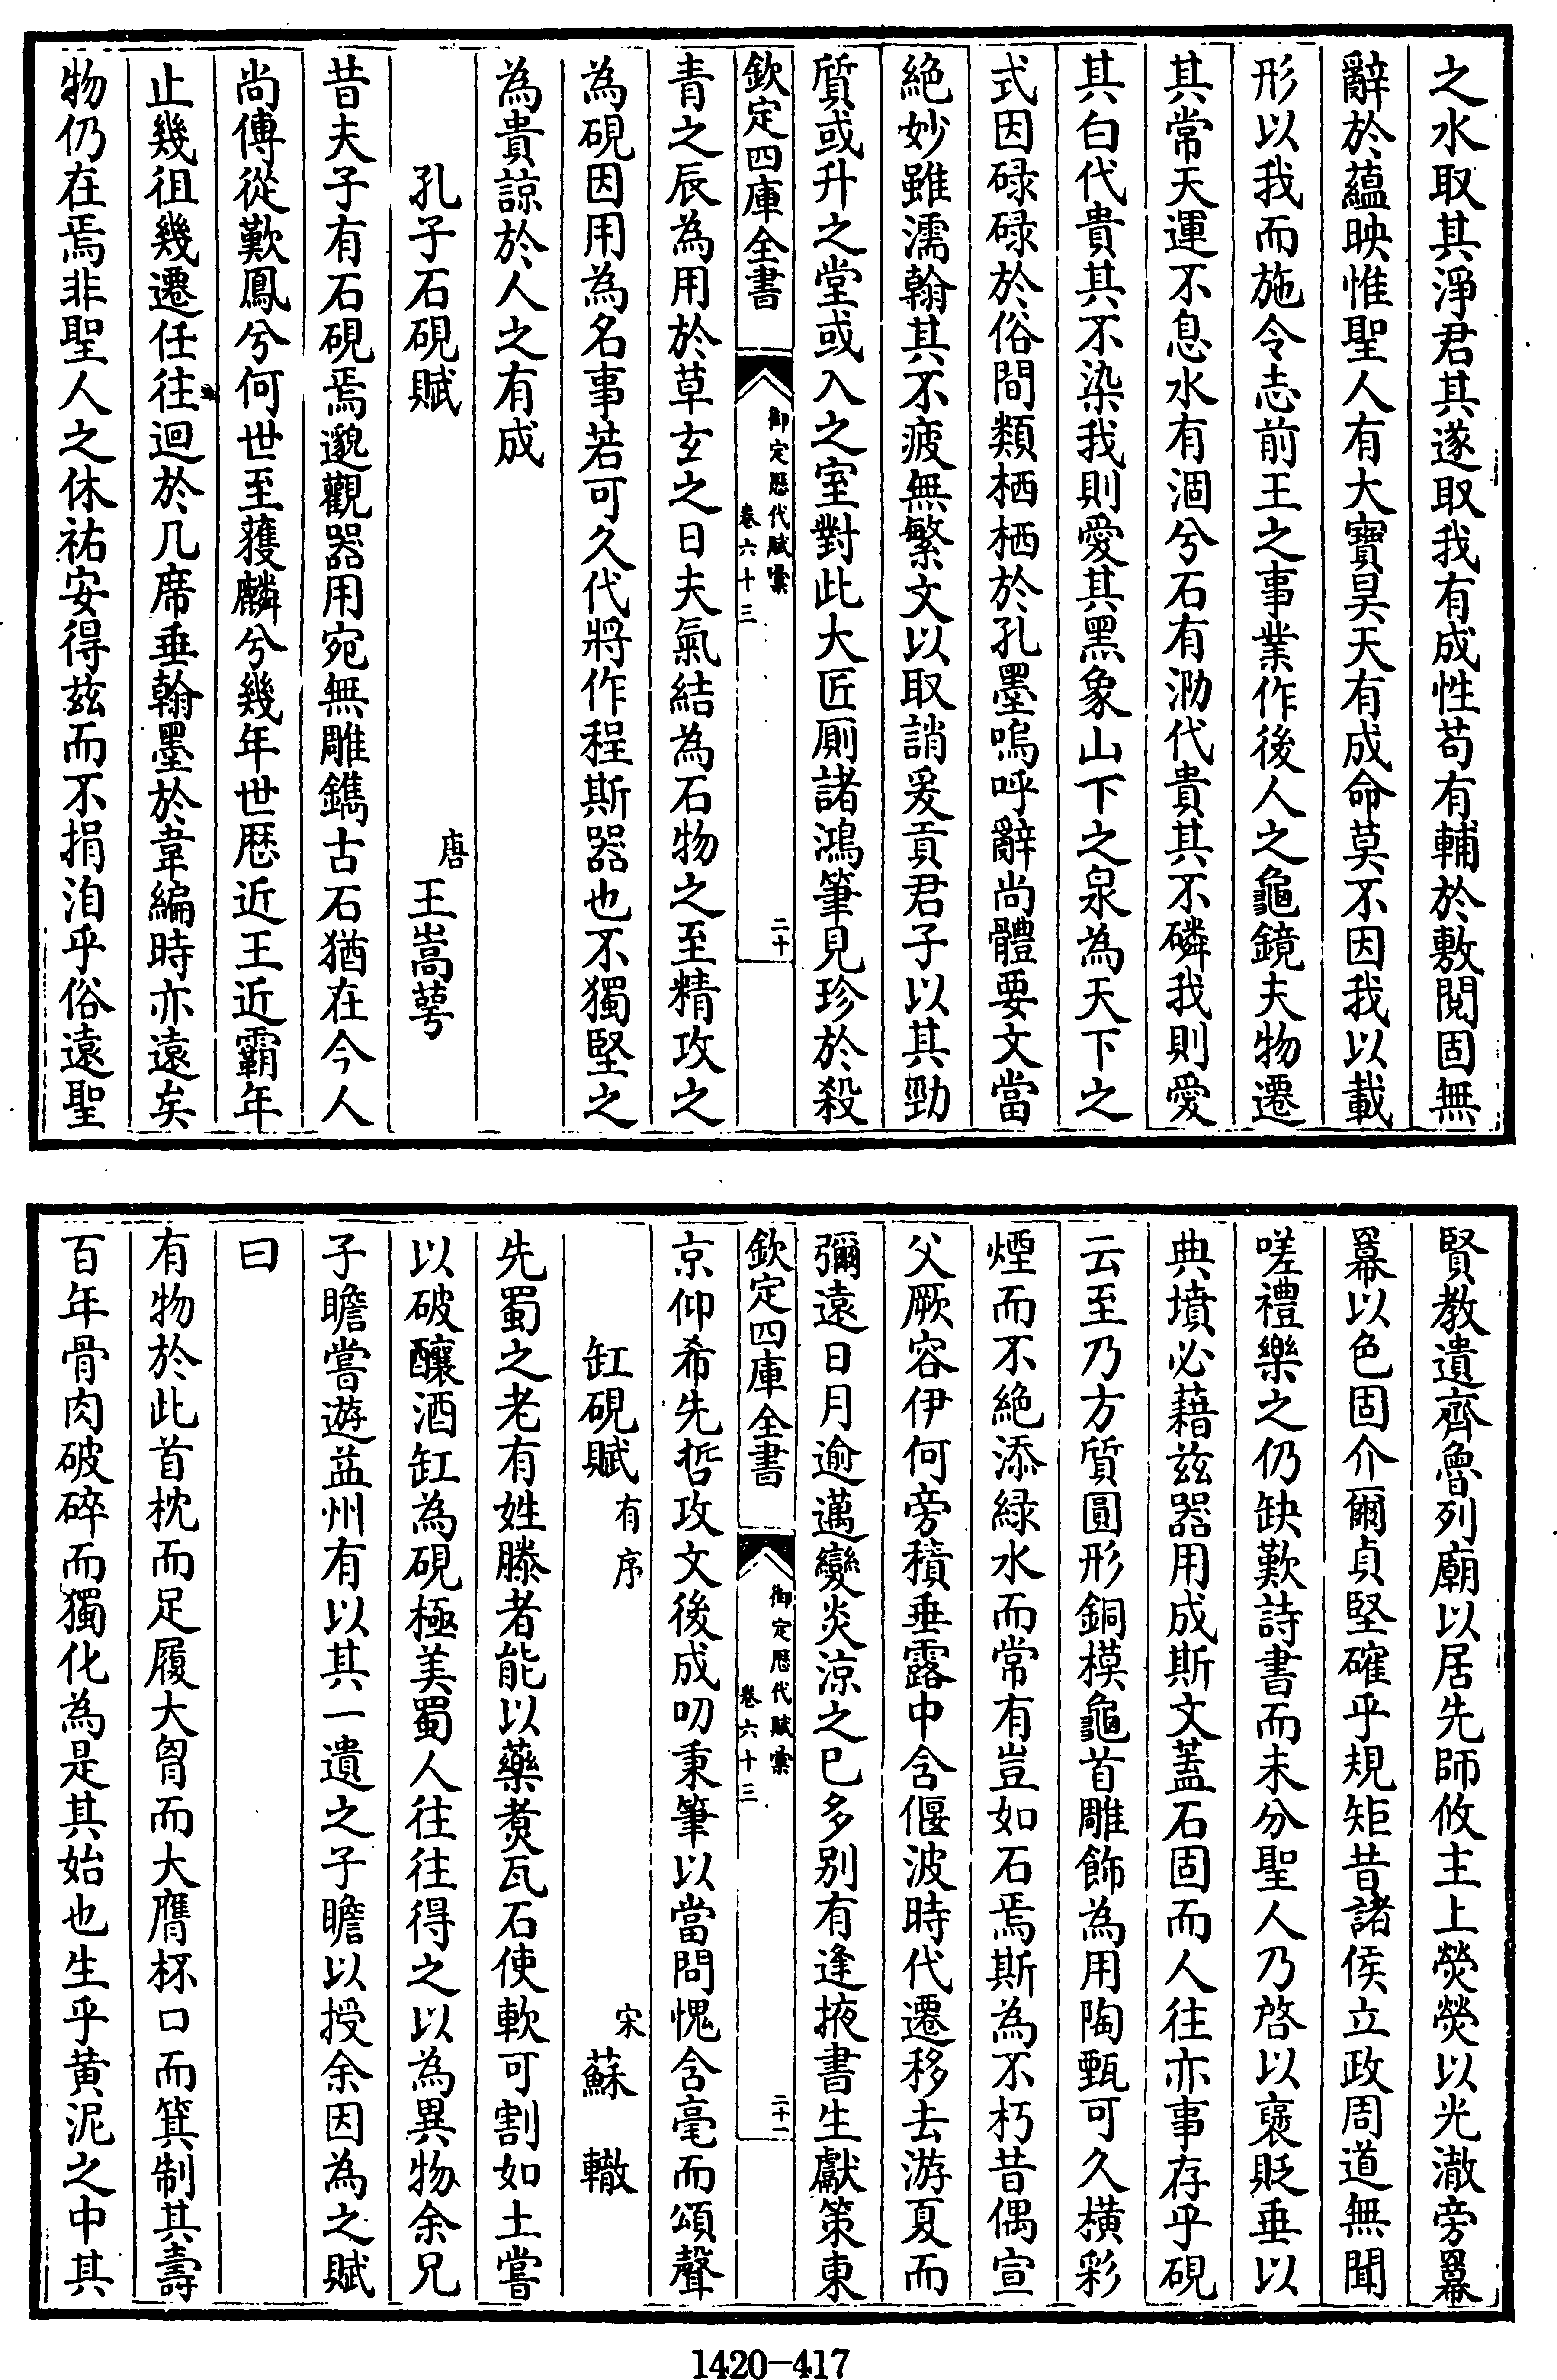 之水取其淨君其遂取我有成性苟有輔於敷閱固無
辭於蘊映惟聖人有大寶昊天有成命莫不因我以載
形以我而施令志前王之事業作後人之龜鏡夫物遷
其常天運不息水有涸兮石有泐代貴其不磷我則愛
其白代貴其不染我則愛其黑象山下之泉為天下之
式因碌碌於俗間類栖栖於孔墨嗚呼辭尚體要文當
絕妙雖濡翰其不疲無繁文以取誚爰貢君子以其勁
質或升之堂或入之室對此大匠厠諸鴻筆見珍於殺
欽定四庫全書
御定歷代賦彙
卷六十三
二十
青之辰為用於草玄之日夫氣結為石物之至精攻之
為硯因用為名事若可久代將作程斯器也不獨堅之
為貴諒於人之有成
孔子石硯賦
唐王嵩萼
昔夫子有石硯焉邈觀器用宛無雕鐫古石猶在今人
尚傳從歎鳳兮何世至獲麟兮幾年世歷近王近霸年
止幾徂幾遷任往迴於几席垂翰墨於韋編時亦遠矣
物仍在焉非聖人之休祐安得茲而不捐洎乎俗遠聖
賢教遺齊魯列廟以居先師攸主上熒熒以光澈旁羃
羃以色固介爾貞堅確乎規矩昔諸侯立政周道無聞
嗟禮樂之仍缺歎詩書而未分聖人乃啓以褒貶垂以
典墳必藉茲器用成斯文蓋石固而人往亦事存乎硯
云至乃方質圓形銅模龜首雕飾為用陶甄可久橫彩
煙而不絕添綠水而常有豈如石焉斯為不朽昔偶宣
父厥容伊何旁積垂露中含偃波時代遷移去游夏而
彌遠日月逾邁變炎涼之已多別有逢掖書生獻策東
欽定四庫全書
御定歷代賦彙
卷六十三
二十一
京仰希先哲攻文後成叨秉筆以當問愧含毫而頌聲
缸硯賦有序
宋蘇轍
先蜀之老有姓滕者能以藥煑瓦石使軟可割如土嘗
以破釀酒缸為硯極美蜀人往往得之以為異物余兄
子瞻嘗遊益州有以其一遺之子瞻以授余因為之賦
曰
有物於此首枕而足履大胷而大膺杯口而箕制其壽
百年骨肉破碎而獨化為是其始也生乎黃泥之中其
1420-417